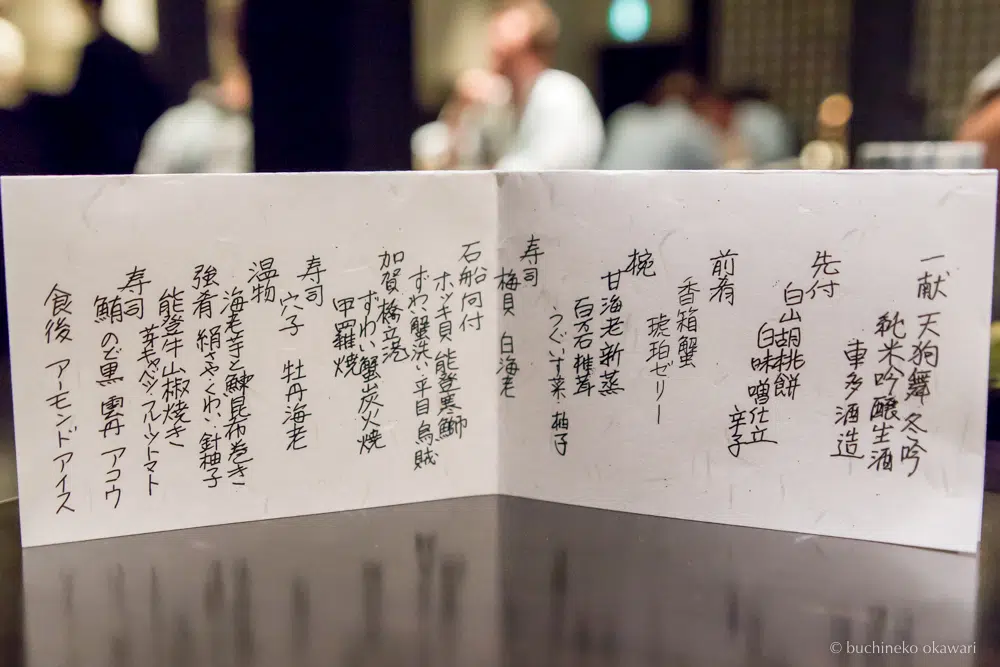 一献 天狗舞 冬吟
純米吟醸生酒
車多酒造
先付
白山胡桃餅
白味噌仕立
辛子
前肴
香箱蟹
琥珀ゼリー
椀
甘海老新蒸
百万石椎茸
うぐいす菜 柚子
寿司
梅貝 白海老
石船向付
ホッキ貝 能登寒鰤
ずわい蟹洗い 平目 烏賊
加賀橋立港
ずわい蟹炭火焼
甲羅焼
寿司
穴子 牡丹海老
温物
海老芋と鰊昆布巻き
強肴 絹さや くわい 針柚子
能登牛山椒焼き
芽キャベツ フルーツトマト
寿司
鮪 のど黒 雲丹 アコウ
食後 アーモンドアイス
© buchineko okawari